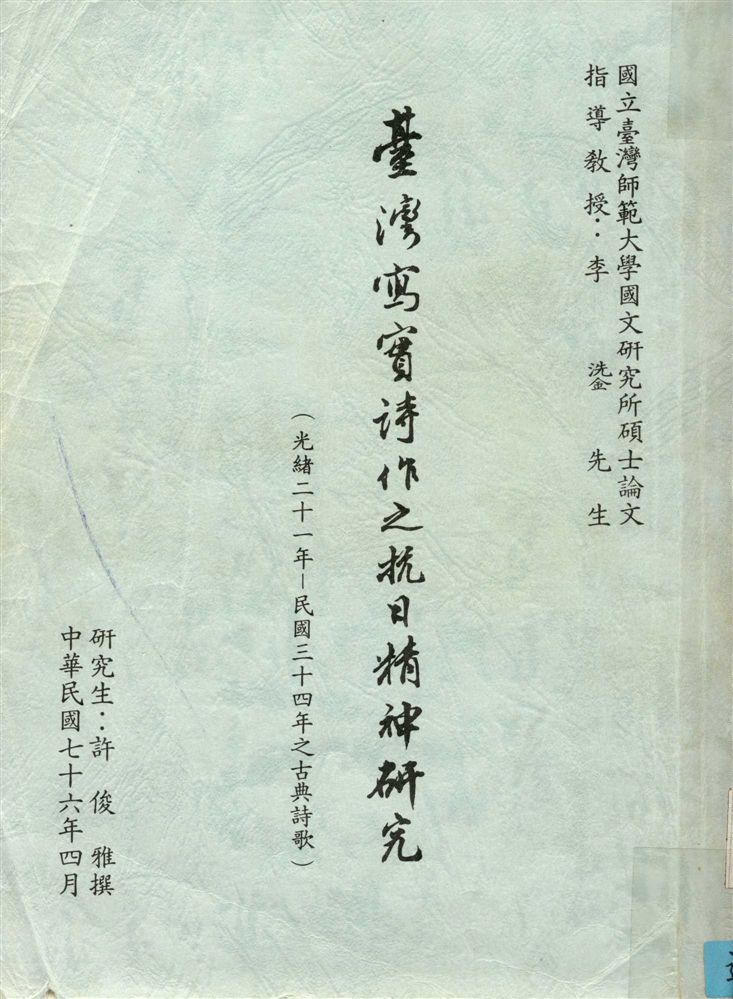 國立臺灣師範大學國文研究所碩士論文
指導教授：李鎏先生
臺灣寫實詩作之抗日精神研究
（光緒二十一年－民國三十四年之古典詩歌）
研究生：許俊雅撰
中華民國七十六年四月